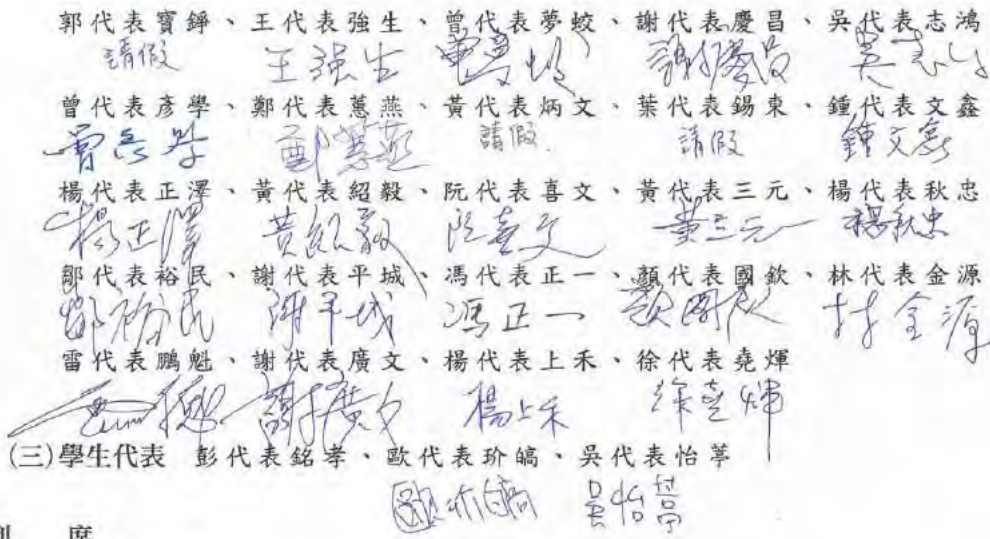 郭代表寶錚、王代表強生、曾代表夢蛟、謝代表慶昌、吳代表志鴻
請假 王強生 曾夢蛟 謝慶昌 吳志鴻
曾代表彥學、鄭代表蕙燕、黃代表炳文、葉代表錫東、鍾代表文鑫
曾彥學 鄭蕙燕 請假. 請假 鍾文鑫
楊代表正澤、黃代表紹毅、阮代表喜文、黃代表三元、楊代表秋忠
楊正澤 黃紹毅 阮喜文 黃三元 楊秋忠
鄒代表裕民、謝代表平城、馮代表正一、顏代表國欽、林代表金源
鄒裕民 謝平城 馮正一 顏國欽 林金源
雷代表鵬魁、謝代表廣文、楊代表上禾、徐代表堯煇
謝廣文 楊上禾 徐堯煇
(三)學生代表 彭代表銘孝、歐代表玠皜、吳代表怡葶
歐玠皜 吳怡葶
列 席